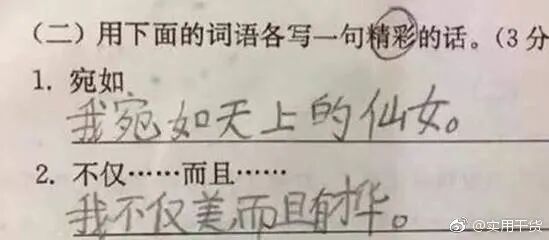 （二）用下面的词语各写一句精彩的话。（3分
1. 宛如
我宛如天上的仙女。
2. 不仅……而且……
我不仅美,而且有才华。
@实用干货